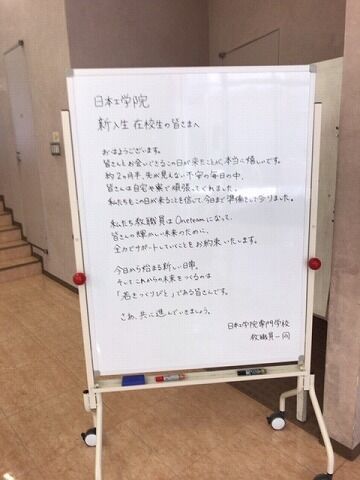 日本工学院
新入生 在校生の皆さまへ
おはようございます。
皆さんとお会いできるこの日が来たことが、本当に嬉しいです。
約2ヵ月半、先が見えない不安の毎日の中、
皆さんは自宅や寮で頑張ってくれました。
私たちもこの日が来ることを信じて今日まで準備をして参りました。
私たち教職員はOneteamになって、
皆さんの輝かしい未来のために、
全力でサポートしていくことをお約束いたします。
今日から始まる新しい日常、
そしてこれからの未来をつくるのは
「若きつくりびと」である皆さんです。
さあ、共に進んでいきましょう。
日本工学院専門学校
教職員一同